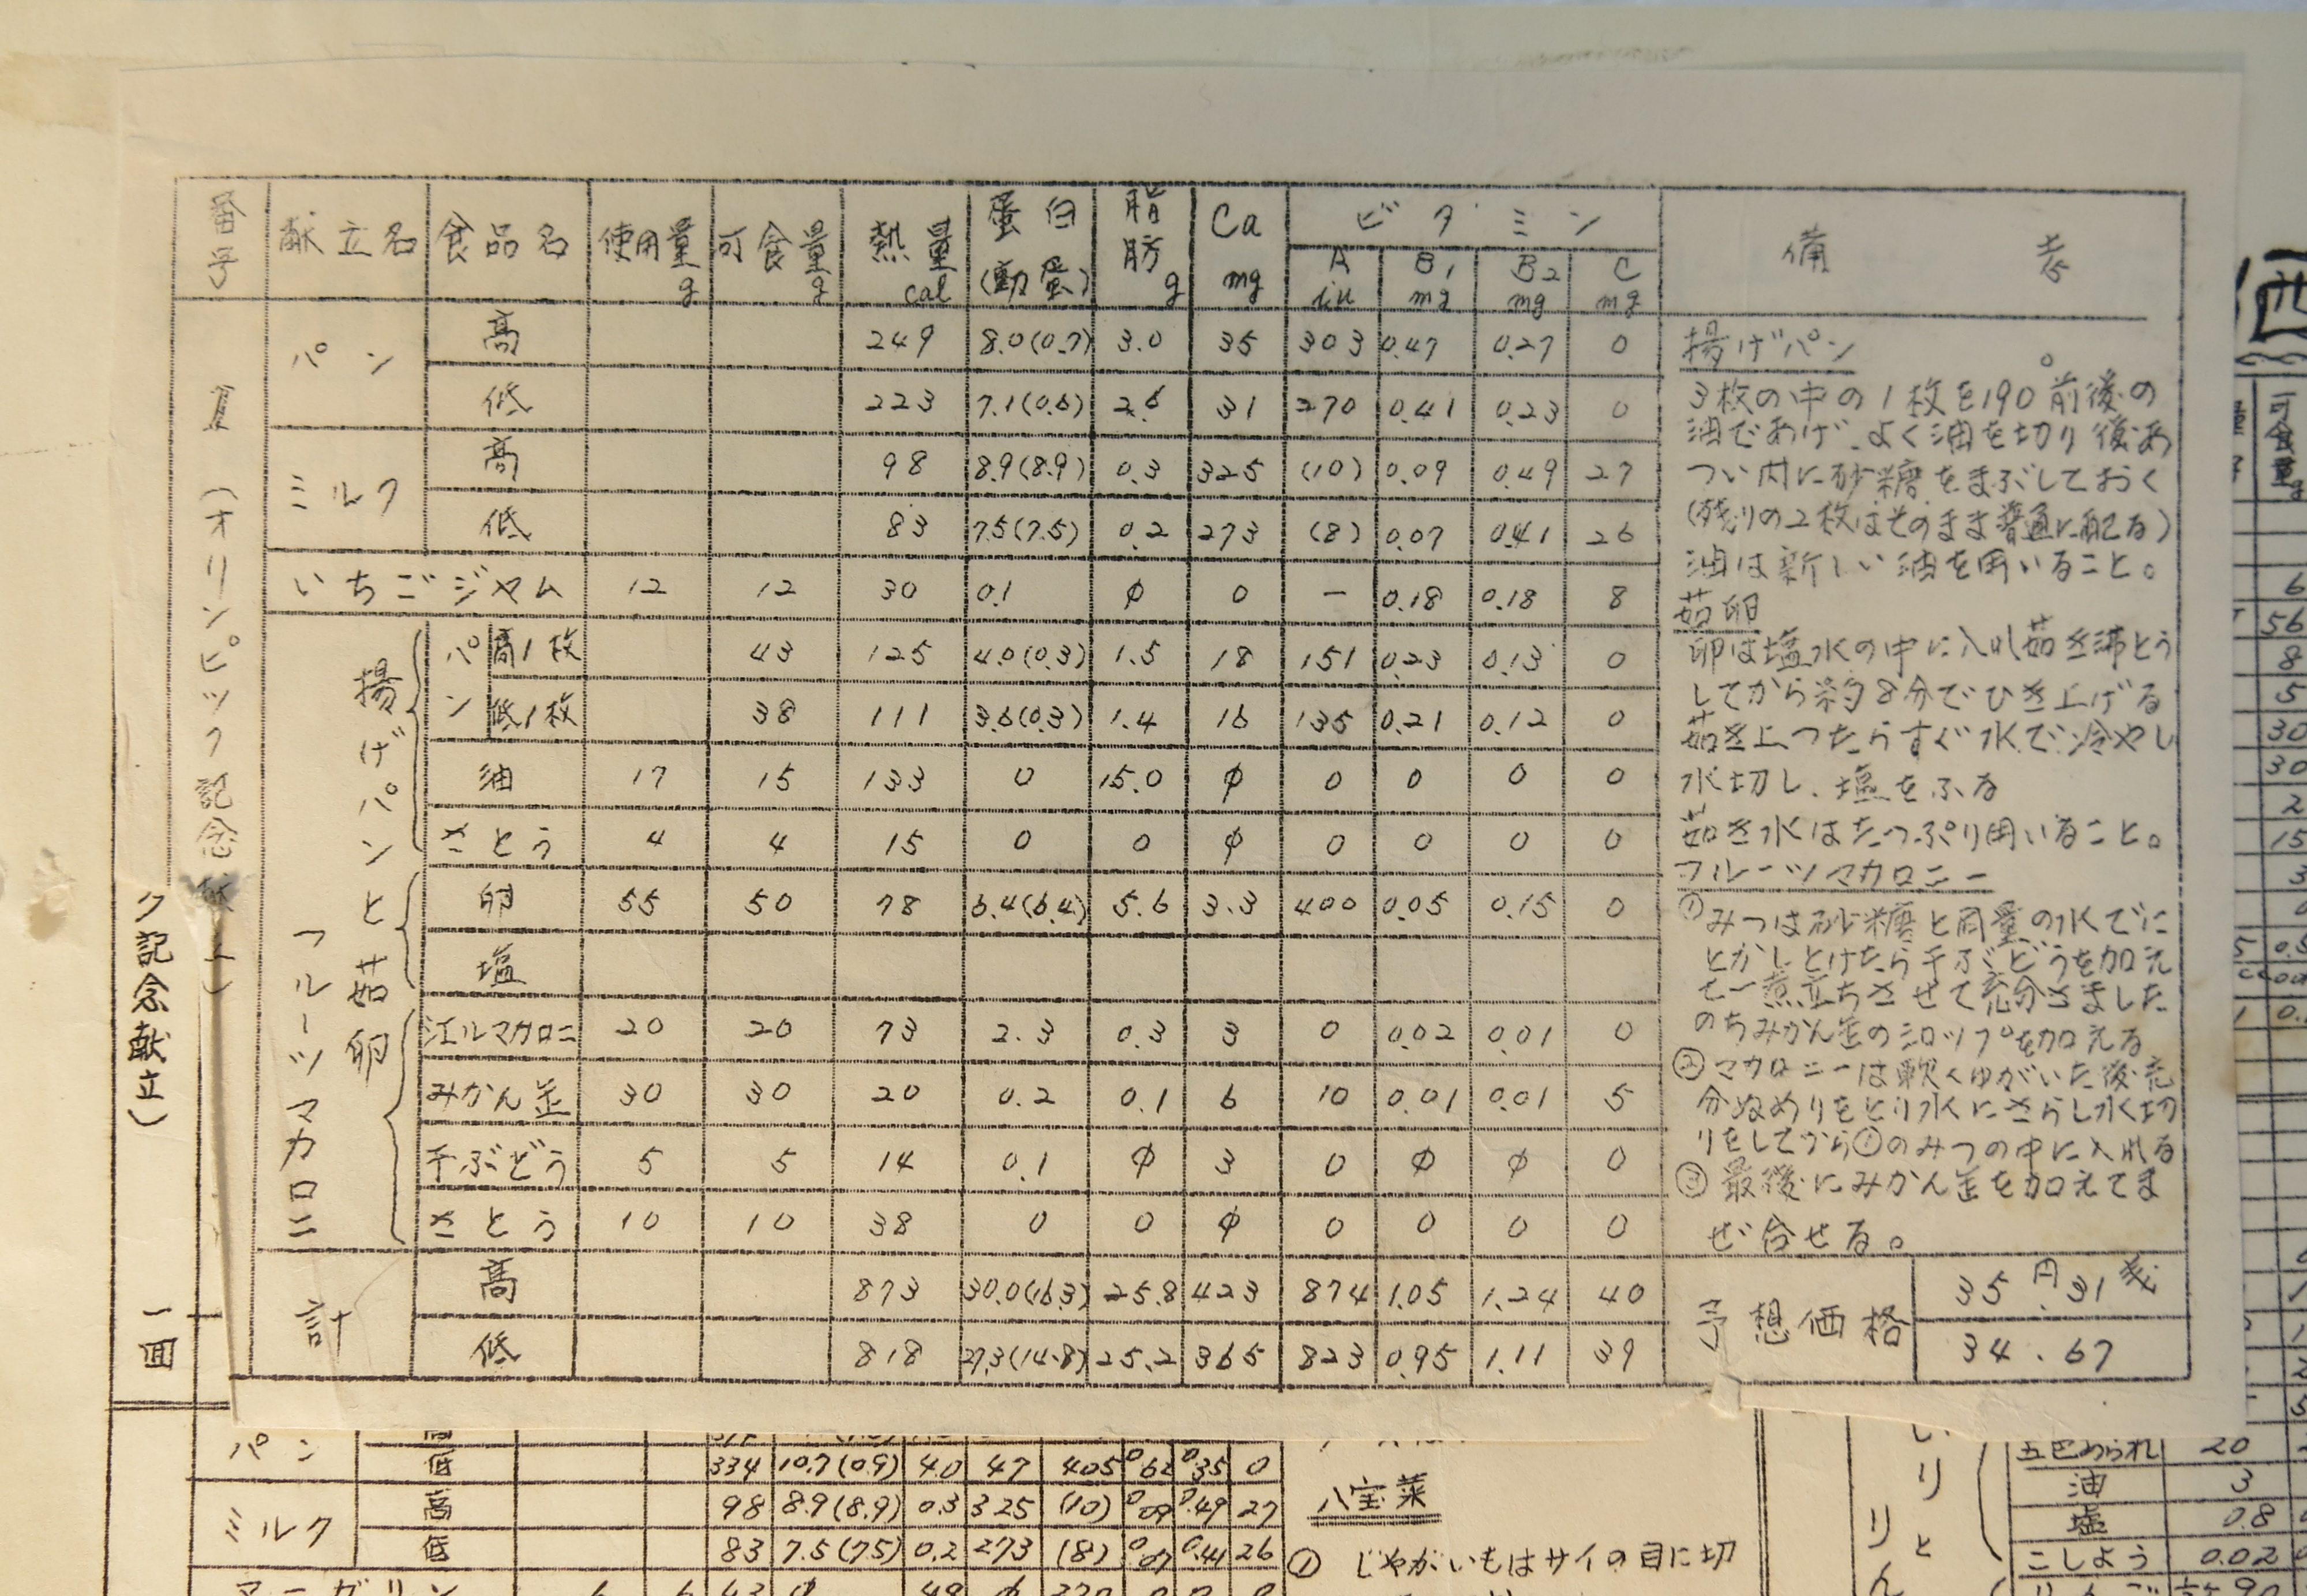 番号 献立名 食品名 使用量g 可食量g 熱量cal 蛋白(動蛋) 脂肪g Ca mg ビタミン A iu B1 mg B2 mg C mg 備考
(オリンピック記念献立)
パン 高 249 8.0(0.7) 3.0 35 303 0.47 0.27 0
低 223 7.1(0.6) 2.6 31 270 0.41 0.23 0
ミルク 高 98 8.9(8.9) 0.3 325 (10) 0.09 0.49 27
低 83 7.5(7.5) 0.2 273 (8) 0.07 0.41 26
いちごジャム 12 12 30 0.1 φ 0 ー 0.18 0.18 8
揚げパンと茹卵
パン 高1枚 43 125 4.0(0.3) 1.5 18 151 0.23 0.13 0
低1枚 38 111 3.6(0.3) 1.4 16 135 0.21 0.12 0
油 17 15 133 0 15.0 φ 0 0 0 0
さとう 4 4 15 0 0 φ 0 0 0 0
卵 55 50 78 6.4(6.4) 5.6 3.3 400 0.05 0.15 0
塩
フルーツマカロニ
江ルマカロニ 20 20 73 2.3 0.3 3 0 0.02 0.01 0
みかん缶 30 30 20 0.2 0.1 6 10 0.01 0.01 5
干ぶどう 5 5 14 0.1 φ 3 0 φ φ 0
さとう 10 10 38 0 0 φ 0 0 0 0
計 高 873 30.0(16.3) 25.8 423 874 1.05 1.24 40
低 818 27.3(14.8) 25.2 365 823 0.95 1.11 39
揚げパン
3枚の中の1枚を190°前後の
油であげ、よく油を切り後あ
つい内に砂糖をまぶしておく
(残りの2枚はそのまま普通に配る)
油は新しい油を用いること。
茹卵
卵は塩水の中に入れ茹き沸とう
してから約8分でひき上げる
茹き上ったらすぐ水で冷やし
水切し、塩をふる
茹き水はたっぷり用いること。
フルーツマカロニー
①みつは砂糖と同量の水でに
とかしとけたら干ぶどうを加え
て一煮立ちさせて充分さました
のちみかん缶のシロップを加える
②マカロニーは軟くゆがいた後充
分ぬめりをとり水にさらし水切
りをしてから①のみつの中に入れる
③最後にみかん缶を加えてま
ぜ合せる。
予想価格 35円.31銭
34.67
ク記念献立)
一回
パン 低 334 10.7(0.9) 4.0 47 405 0.62 0.35 0
ミルク 高 98 8.9(8.9) 0.3 325 (10) 0.09 0.49 27
低 83 7.5(7.5) 0.2 273 (8) 0.07 0.41 26
八宝菜
① じゃがいもはサイの目に切
五色あられ 20
油 3
塩 0.8
こしょう 0.02
可食量g
6
56
8
5
30
30
2
15
3